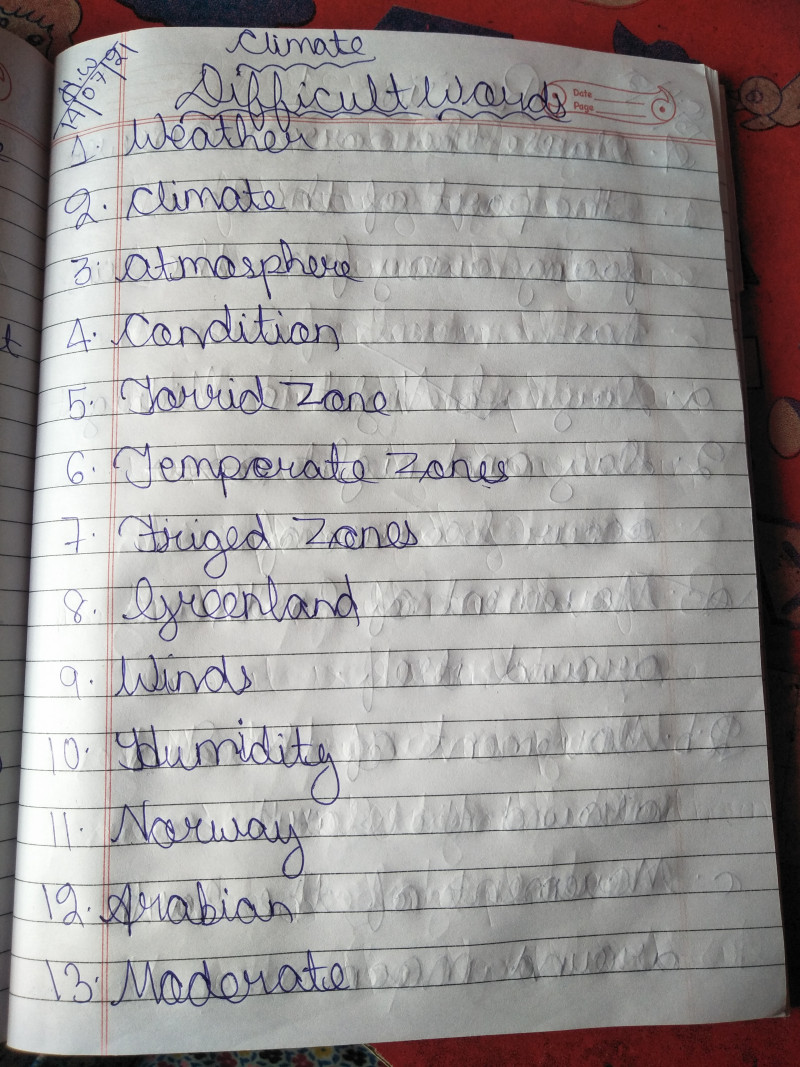 Climate
H.W
14/07/21
Difficult Words
Date
Page
1. Weather
2. Climate
3. Atmosphere
4. Condition
5. Torrid Zone
6. Temperate Zones
7. Friged Zones
8. Greenland
9. Winds
10. Humidity
11. Norway
12. Arabian
13. Moderate